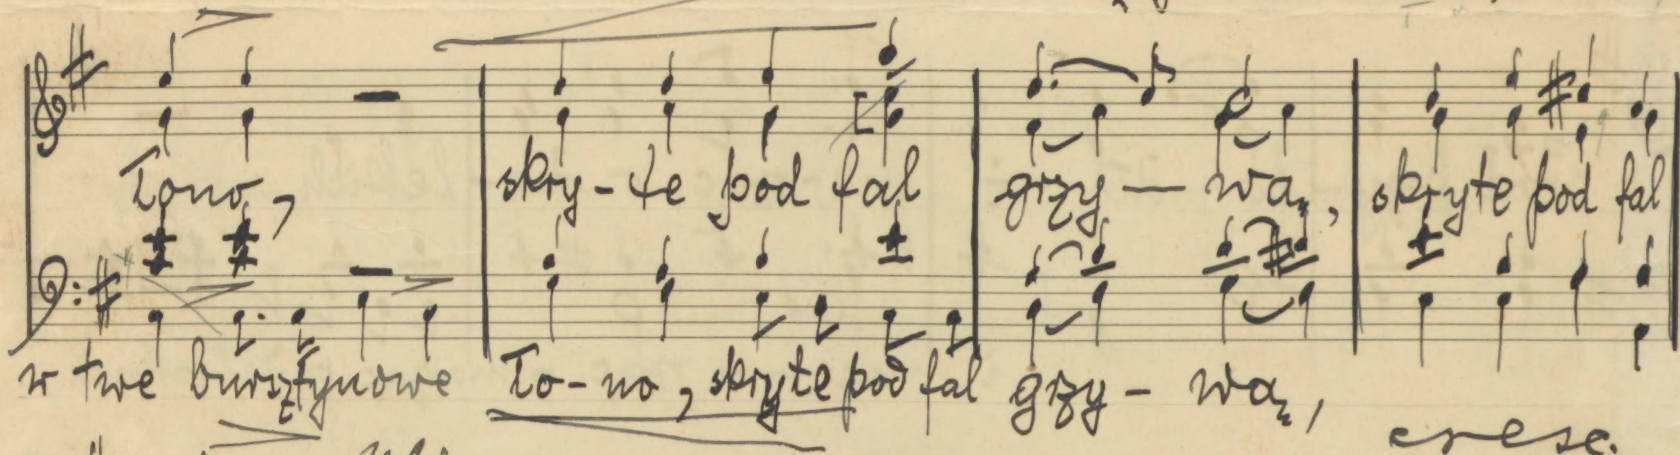 Łono, skry - te pod fal grzy — wą, skryte pod fal
w twe bursztynowe Ło - no, skryte pod fal grzy - wą,
cresc.